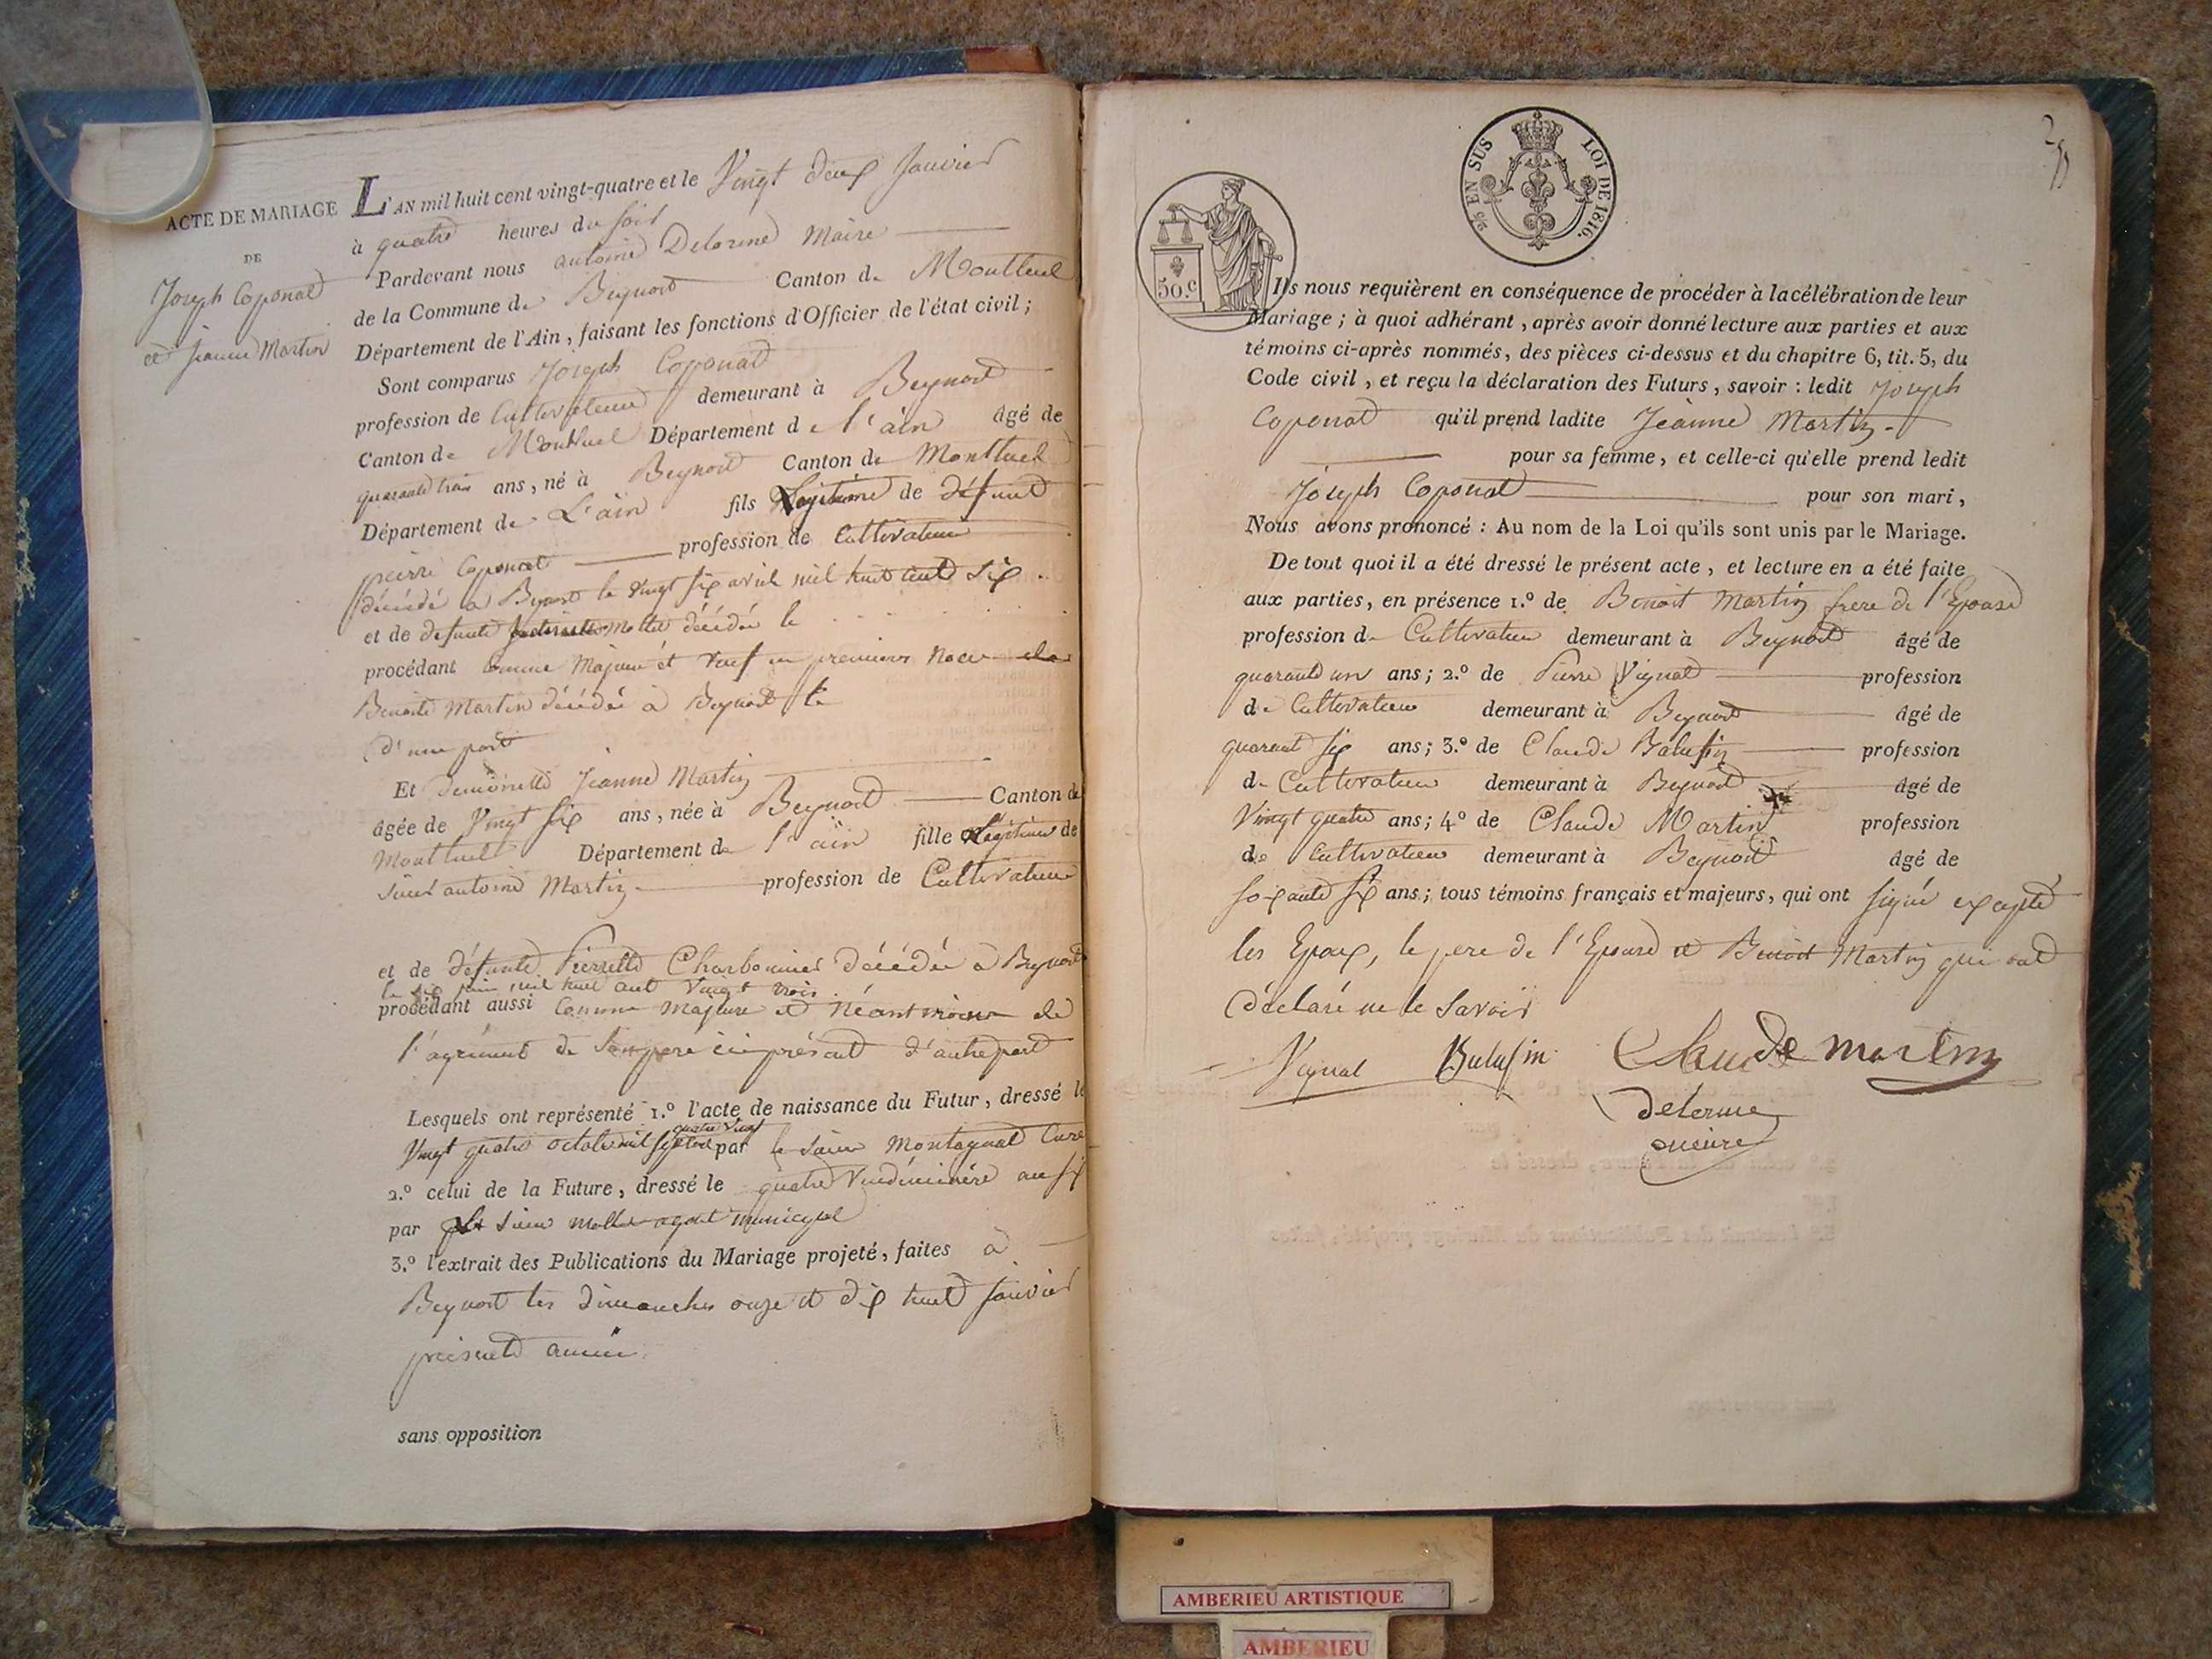 ACTE DE MARIAGE
DE
Joseph Coponat
et jeanne Martin
L'AN mil huit cent vingt-quatre et le Vingt deux Janvier
à quatre heures du soir
Pardevant nous antoine Delorme Maire
de la Commune de Beynost Canton de Montluel
Département de l'Ain, faisant les fonctions d'Officier de l'état civil ;
Sont comparus Joseph Coponat
profession de Cultivateur demeurant à Beynost
Canton de Montluel Département de l'ain âgé de
quarante trois ans, né à Beynost Canton de Montluel
Département de L'ain fils Légitime de défunt
pierre Coponat profession de Cultivateur
décédé a Beynost le vingt six avril mil huit cent six
et de defunte mollet décédée le
procédant comme Majeur et veuf en premieres Noces de
Benoite Martin décédée a Beynost le
d'une part
Et demoiselle Jeanne Martin
âgée de Vingt six ans, née à Beynost Canton de
Montluel Département de l'ain fille Légitime de
sieur antoine Martin profession de Cultivateur
et de défunte Pierrette Charbonnier décédée a Beynost
le six juin mil huit cent vingt trois
procédant aussi comme Majeure et Néantmoins de
l'agrément de Son pere ici présent d'autre part
Lesquels ont représenté 1.º l'acte de naissance du Futur, dressé le
quatre vingt
Vingt quatre octobre mil sept cent par le sieur Montagnat Curé
2.º celui de la Future, dressé le quatre Vendémiaire an six
par le sieur mollet agent municipal
3.º l'extrait des Publications du Mariage projeté, faites à
Beynost les dimanches onze et dix huit janvier
présente année.
sans opposition
2/5 EN SUS LOI DE 1816.
50.c
Ils nous requièrent en conséquence de procéder à la célébration de leur
Mariage ; à quoi adhérant, après avoir donné lecture aux parties et aux
témoins ci-après nommés, des pièces ci-dessus et du chapitre 6, tit. 5, du
Code civil, et reçu la déclaration des Futurs, savoir : ledit Joseph
Coponat qu'il prend ladite Jeanne Martin
pour sa femme, et celle-ci qu'elle prend ledit
Joseph Coponat pour son mari,
Nous avons prononcé : Au nom de la Loi qu'ils sont unis par le Mariage.
De tout quoi il a été dressé le présent acte, et lecture en a été faite
aux parties, en présence 1.º de Benoit Martin frere de l'Epouse
profession de Cultivateur demeurant à Beynost âgé de
quarante un ans ; 2.º de Pierre Vignat profession
de Cultivateur demeurant à Beynost âgé de
quarant six ans ; 3.º de Claude Balufin profession
de Cultivateur demeurant à Beynost âgé de
Vingt quatre ans ; 4º de Claude Martin profession
de Cultivateur demeurant à Beynost âgé de
soixante six ans ; tous témoins français et majeurs, qui ont signé excepté
les Epoux, le pere de l'Epouse et Benoit Martin qui ont
déclaré ne le Savoir
Vignat Balufin Claude martin
delorme
maire
AMBERIEU ARTISTIQUE
AMBERIEU